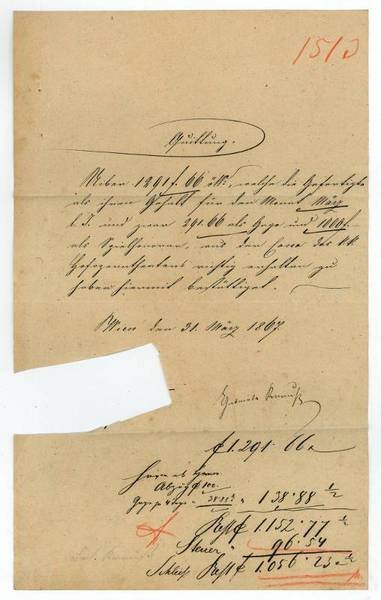 151
Quittung.
Ueber 1291 f. 66 öW., welche die Gefertigte
als ihren Gehalt für den Monat März
l.J. und zwar 291.66 als Gage und 1000 f.
als Spielhonorar, aus der Cassa des kk
Hofoperntheaters richtig erhalten zu
haben hiermit bestättiget.
Wien den 31. März 1867
Gabriele Krauß
f 1.291. 66
Abzug f 100.
38.88 1/2 138.88 1/2
Rest f 1.152.77 1/2
Steuer 96.54
Rest f 1.056.23 1/2